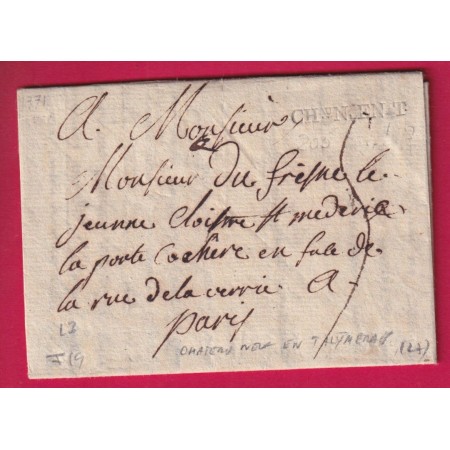 1771
CHN.EN.T
A Monsieur
Monsieur du fresne le
jeunne Cloistre St mederic
la porte Cochere en face de
la rue de la verrie A
paris
L3
I 19
CHATEAU NEUF EN THYMERAIS
(27)